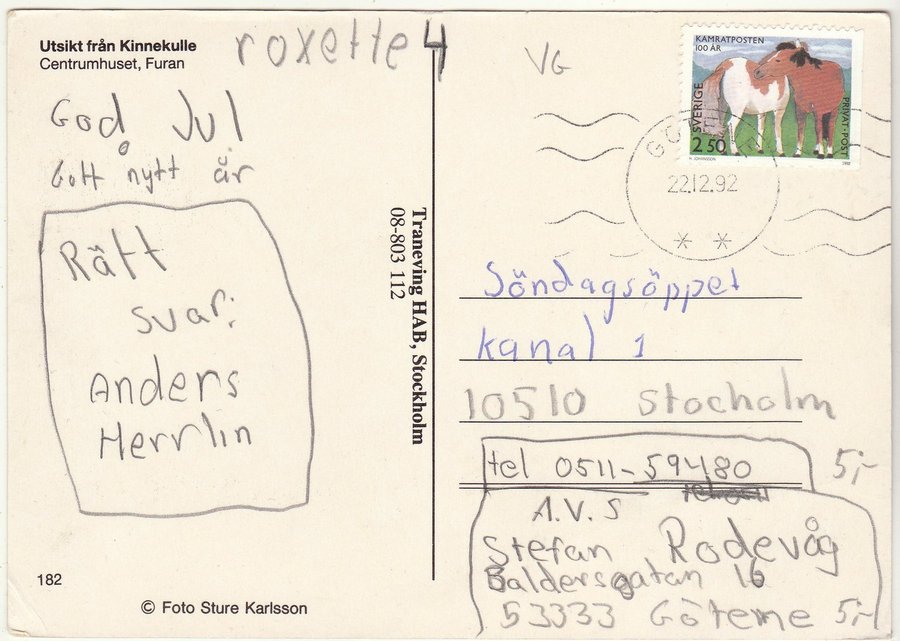 Utsikt från Kinnekulle
Centrumhuset, Furan
roxette 4
God Jul
Gott nytt år
Rätt
svar:
Anders
Herrlin
182
© Foto Sture Karlsson
Traneving HAB, Stockholm
08-803 112
VG
KAMRATPOSTEN
100 ÅR
SVERIGE
2 50
PRIVAT·POST
N. JOHANSSON
1992
22.12.92
* *
Söndagsöppet
kanal 1
10510 Stocholm
tel 0511-59480
5;-
A.V.S
Stefan Rodevåg
Baldersgatan 16
53333 Göteme 5;-